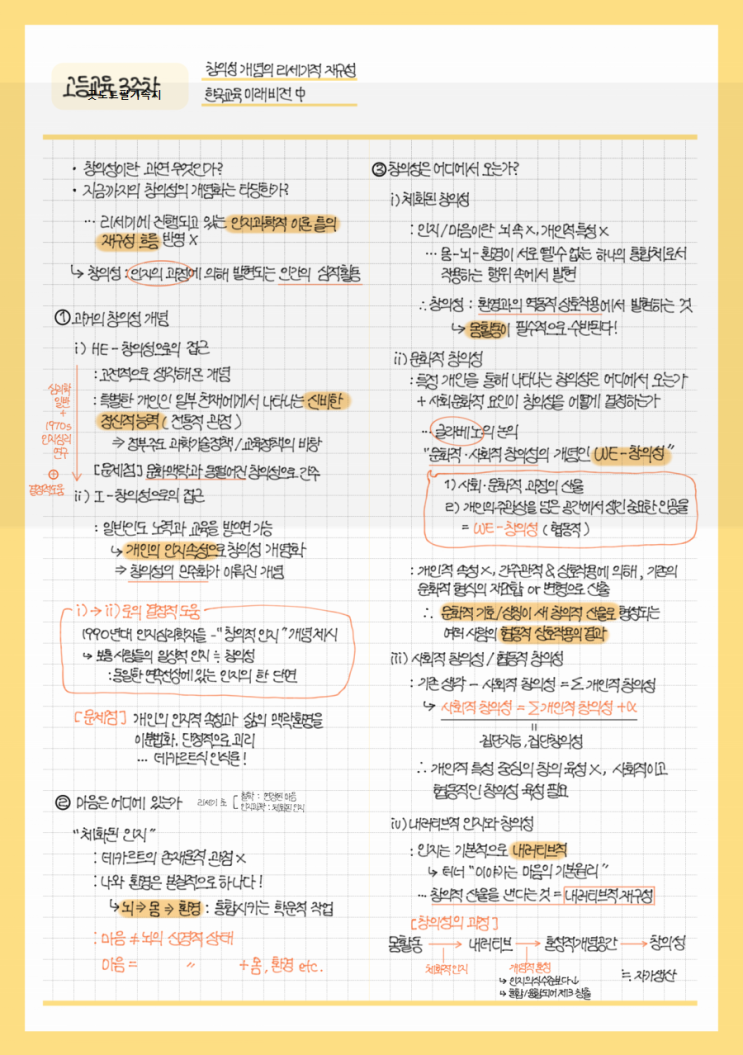 고등교육 3주차
창의성 개념의 21세기적 재구성
한국교육 미래 비전 中
· 창의성이란 과연 무엇인가?
· 지금까지의 창의성의 개념화는 타당한가?
… 21세기에 진행되고 있는 인지과학적 이론 틀의
재구성 흐름 반영 X
↳ 창의성 : 인지의 과정에 의해 발현되는 인간의 심적활동
① 과거의 창의성 개념
i) HE - 창의성으로의 접근
: 고전적으로 생각해온 개념
: 특별한 개인인 일부 천재에게서 나타나는 신비한
정신적 능력 (전통적 관점)
⇒ 정부주도 과학기술정책 / 교육정책의 바탕
[문제점] 문화맥락과 동떨어진 창의성으로 간주
심리학
일반
+
1970s
인지심리
연구
⊕
결정적도움
ii) I - 창의성으로의 접근
: 일반인도 노력과 교육을 받으면 가능
↳ 개인의 인지속성으로 창의성 개념화
⇒ 창의성의 민주화가 이뤄진 개념
i) → ii)로의 결정적 도움
1990년대 인지심리학자들 - "창의적 인지" 개념 제시
↳ 보통 사람들의 일상적 인지 ≒ 창의성
: 동일한 연속선상에 있는 인지의 한 단면
[문제점] 개인의 인지적 속성과 삶의 맥락환경을
이분법화, 단정적으로 괴리
… 데카르트식 인식론!
② 마음은 어디에 있는가
21세기 초
철학 : 연장된 마음
인지과학 : 체화된 인지
"체화된 인지"
: 데카르트의 존재론적 관점 X
: 나와 환경은 본질적으로 하나다!
↳ 뇌 ⇒ 몸 ⇒ 환경 : 통합시키는 학문적 작업
: 마음 ≠ 뇌의 신경적 상태
마음 = 〃 + 몸, 환경 etc.
③ 창의성은 어디에서 오는가?
i) 체화된 창의성
: 인지/마음이란 뇌 속 X, 개인적 특성 X
… 몸-뇌-환경이 서로 뗄 수 없는 하나의 통합체로서
작용하는 행위 속에서 발현
∴ 창의성 : 환경과의 역동적 상호작용에서 발현하는 것
↳ 몸활동이 필수적으로 수반된다!
ii) 문화적 창의성
: 특정 개인을 통해 나타나는 창의성은 어디에서 오는가
+ 사회문화적 요인이 창의성을 어떻게 결정하는가
… 글라베노의 논의
"문화적·사회적 창의성의 개념인 WE-창의성"
1) 사회·문화적 과정의 산물
2) 개인의 주관성을 넘은 공간에서 생긴 중요한 인공물
= WE-창의성 (협동적)
: 개인적 속성 X, 간주관적 & 상호작용에 의해, 기존의
문화적 형식의 재조합 or 변형으로 산출
∴ 문화적 기호/상징이 새 창의적 산물로 형성되는
여러 사람의 협동적 상호작용의 결과
iii) 사회적 창의성 / 협동적 창의성
: 기존 생각 - 사회적 창의성 = Σ 개인적 창의성
↳ 사회적 창의성 = Σ 개인적 창의성 + α
=
집단지능, 집단창의성
∴ 개인적 특성 중심의 창의 육성 X, 사회적이고
협동적인 창의성 육성 필요
iv) 내러티브적 인지와 창의성
: 인지는 기본적으로 내러티브적
↳ 터너 "이야기는 마음의 기본원리"
… 창의적 산물을 낸다는 것 = 내러티브적 재구성
[창의성의 과정]
몸활동 → 내러티브 → 혼성적 개념공간 → 창의성
체화적 인지
개념적 혼성
↳ 인지 의식수준보다↓
↳ 혼합/융합되어 제3 창출
≒ 자가생산